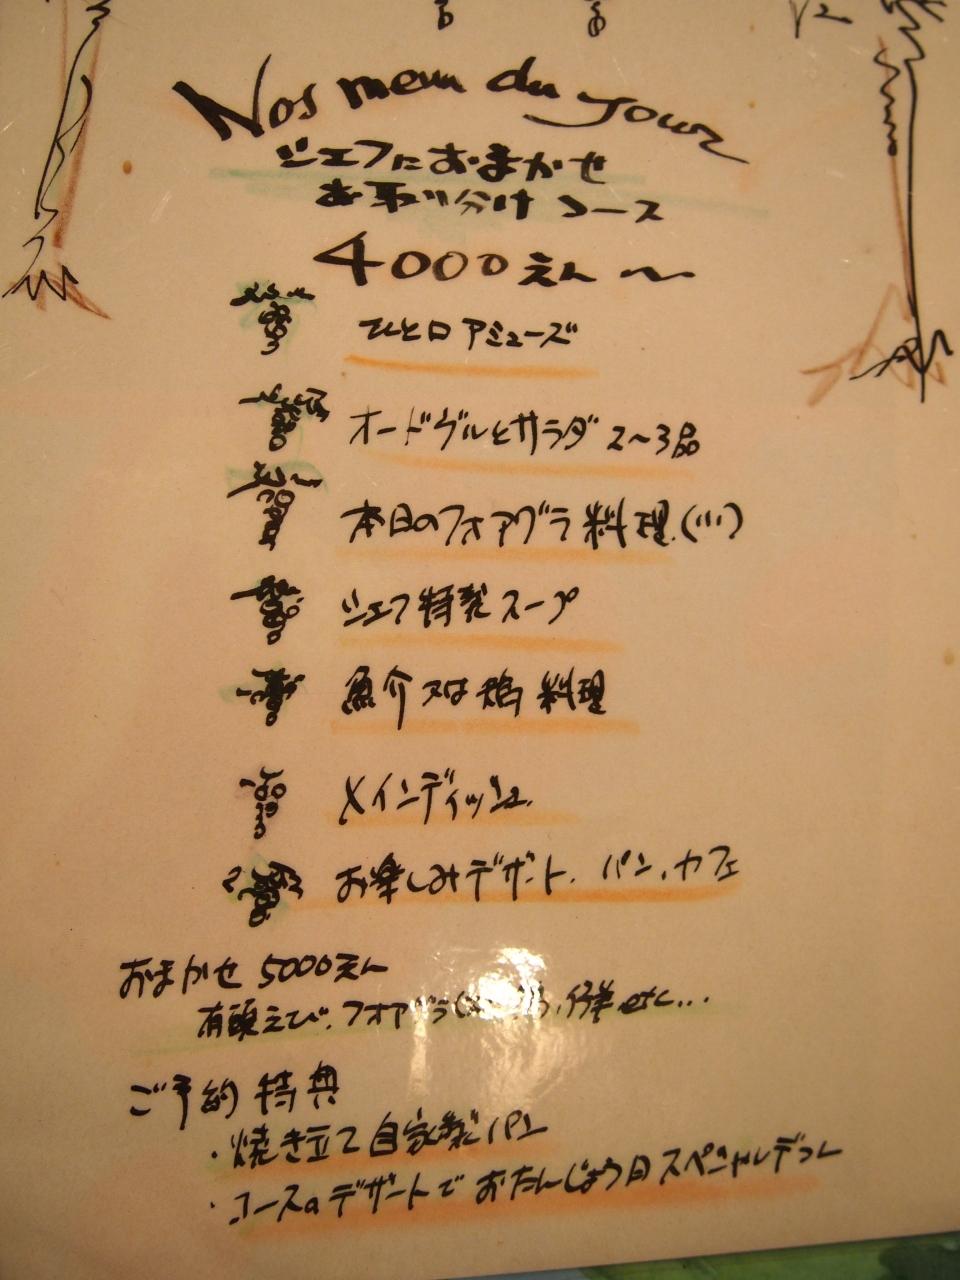 Nos menu du jour
シェフにおまかせ
お取り分けコース
4000えん〜
ひと口アミューズ
オードヴルとサラダ 2〜3品
本日のフォアグラ料理(…)
シェフ特製スープ
魚介又は 料理
メインディッシュ
お楽しみデザート、パン、カフェ
おまかせ 5000えん
有頭えび、フォアグラ 、仔羊etc...
ご予約特典
・焼き立て自家製パン
・コースのデザートでおたんじょう日スペシャルデコレ